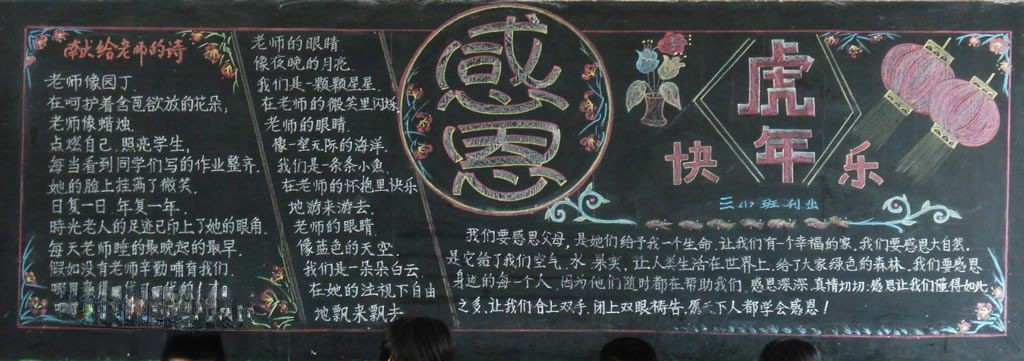 献给老师的诗
老师像园丁.
在呵护着含苞欲放的花朵;
老师像蜡烛.
点燃自己.照亮学生,
每当看到同学们写的作业整齐.
她的脸上挂满了微笑.
日复一日.年复一年.
時光老人的足迹已印上了她的眼角.
每天老师睡的最晚起的最早.
假如没有老师辛勤哺育我们.
哪里来得一代又一代的人才.
老师的眼睛
像夜晚的月亮.
我们是一颗颗星星
在老师的微笑里闪烁
老师的眼睛.
像一望无际的海洋.
我们是一条条小鱼.
在老师的怀抱里快乐
地游来游去.
老师的眼睛
像蓝色的天空.
我们是一朵朵白云
在她的注视下自由
地飘来飘去
感恩
虎年
快乐
三(1)班刊出
我们要感恩父母,是她们给予我一个生命.让我们有一个幸福的家.我们要感恩大自然.
是它给了我们空气.水.果实.让人类生活在世界上.给了大家绿色的森林.我们要感恩
身边的每一个人.因为他们随时都在帮助我们.感恩深深.真情切切.感恩让我们懂得如此
之多.让我们合上双手.闭上双眼祷告.愿天下人都学会感恩!